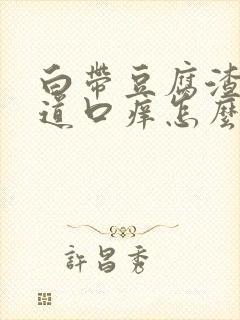 白帶豆腐渣
道口痒怎麼
許昌秀